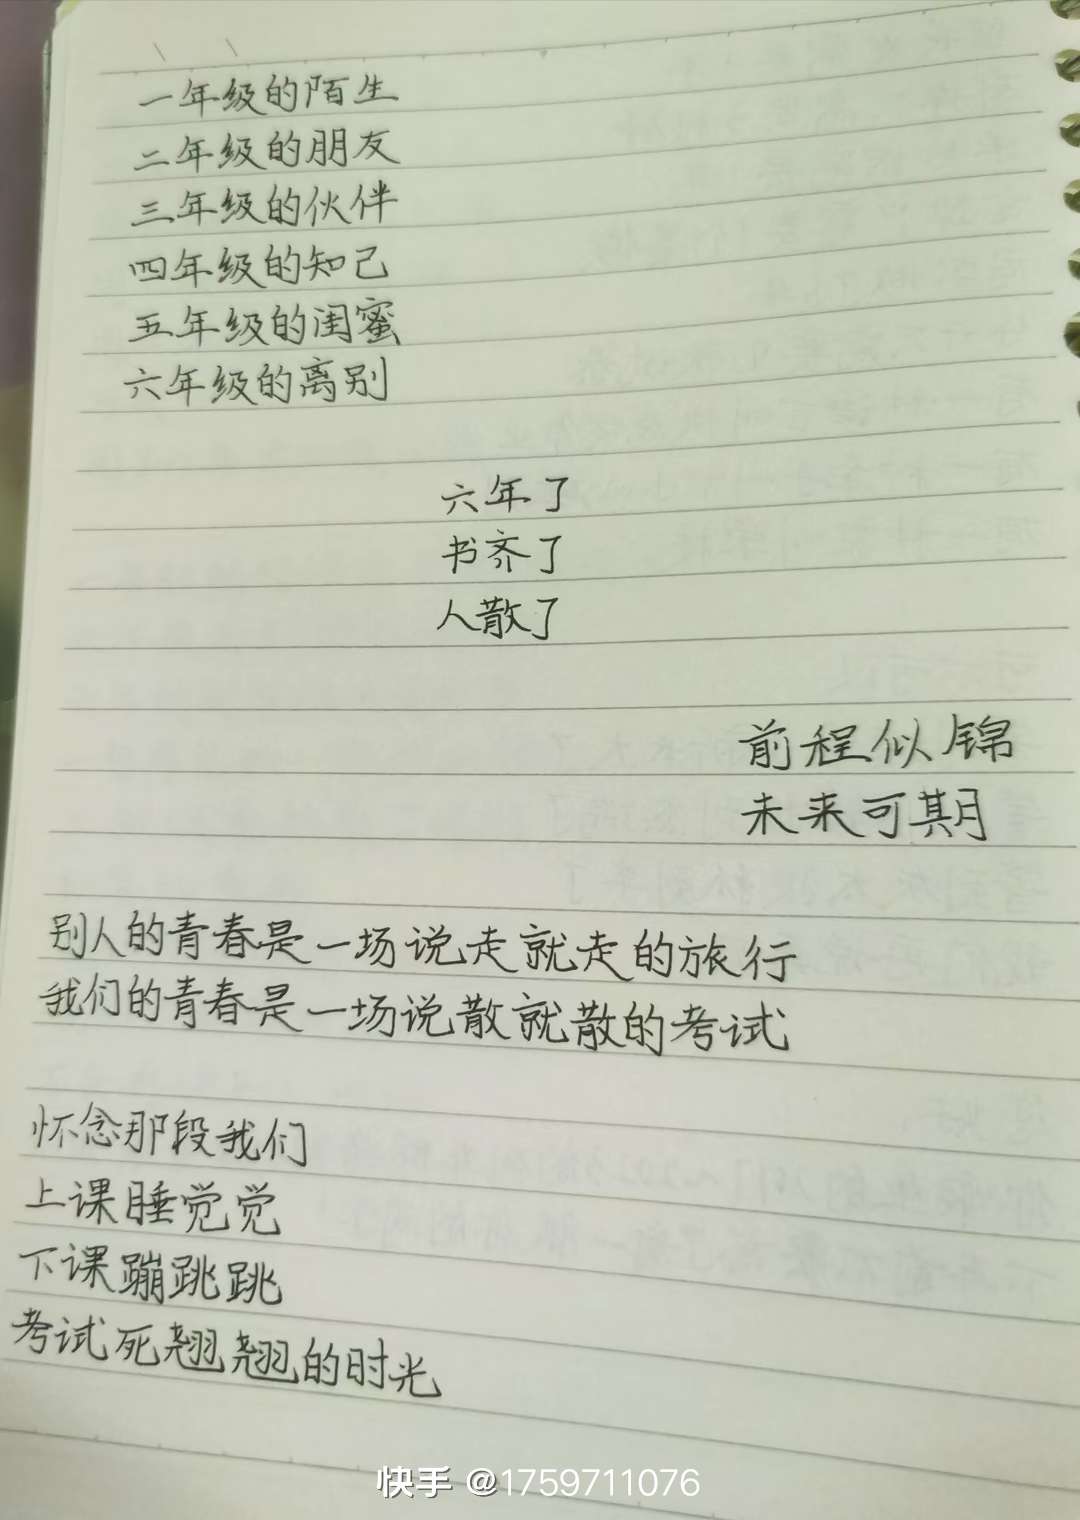 一年级的陌生
二年级的朋友
三年级的伙伴
四年级的知己
五年级的闺蜜
六年级的离别
六年了
书齐了
人散了
前程似锦
未来可期
别人的青春是一场说走就走的旅行
我们的青春是一场说散就散的考试
怀念那段我们
上课睡觉觉
下课蹦跳跳
考试死翘翘的时光
快手 @1759711076